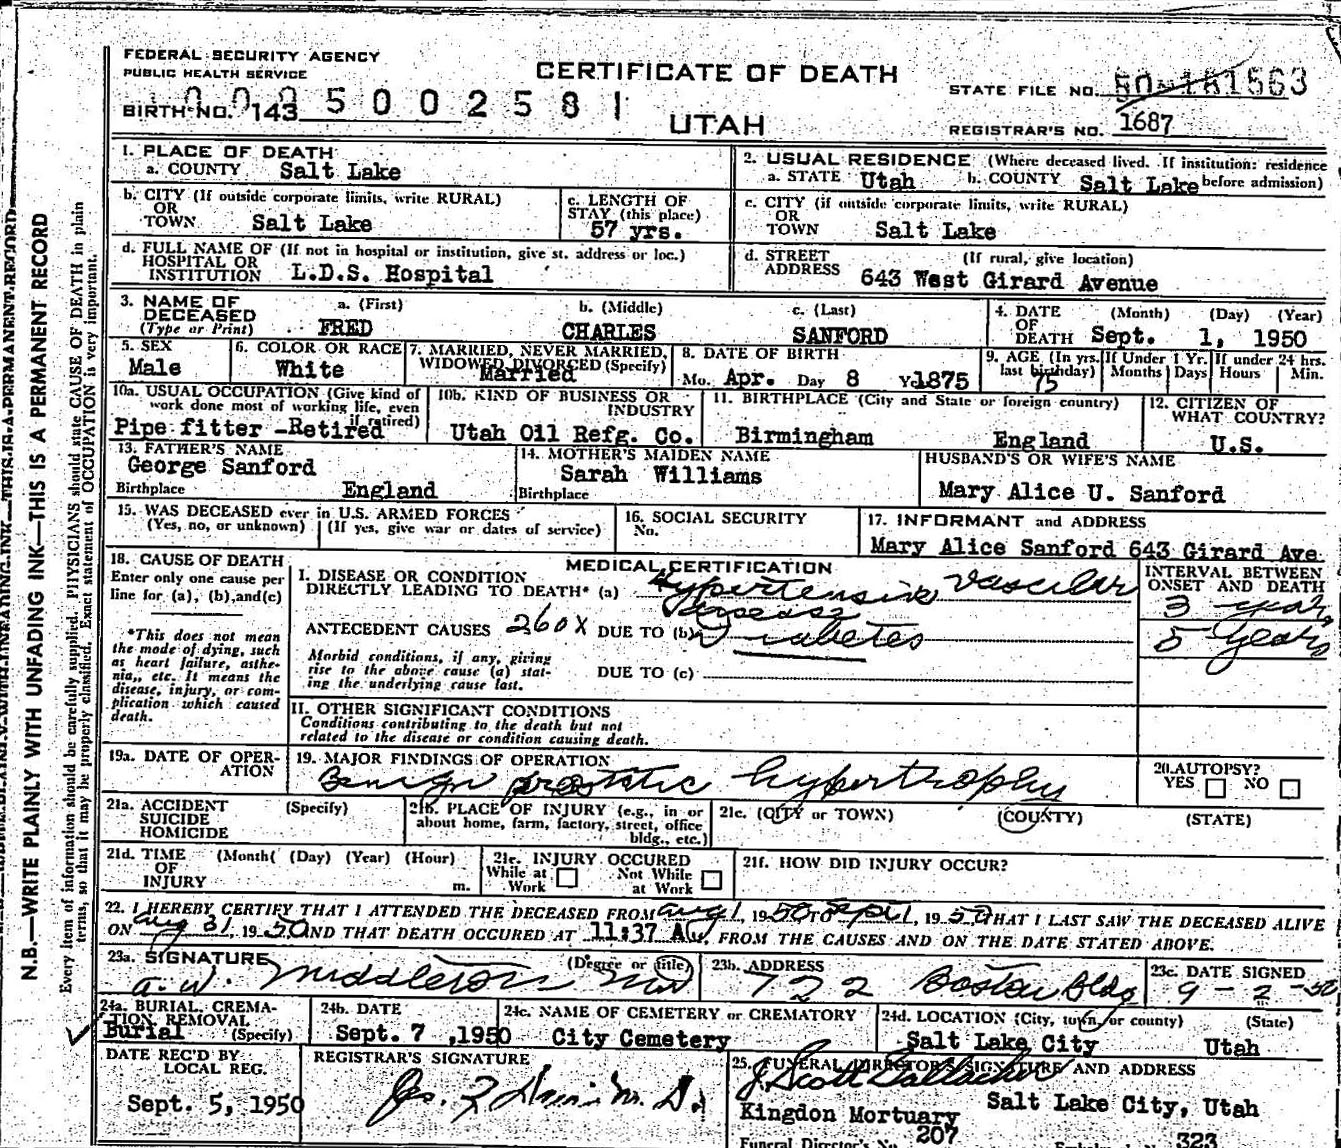 FEDERAL SECURITY AGENCY
PUBLIC HEALTH SERVICE
CERTIFICATE OF DEATH
STATE FILE NO. 50-181563
BIRTH NO. 143
0005002581
UTAH
REGISTRAR'S NO. 1687
1. PLACE OF DEATH
a. COUNTY Salt Lake
2. USUAL RESIDENCE (Where deceased lived. If institution: residence before admission)
a. STATE Utah b. COUNTY Salt Lake
b. CITY (If outside corporate limits, write RURAL)
OR
TOWN Salt Lake
c. LENGTH OF
STAY (this place)
57 yrs.
c. CITY (if outside corporate limits, write RURAL)
OR
TOWN Salt Lake
d. FULL NAME OF (If not in hospital or institution, give st. address or loc.)
HOSPITAL OR
INSTITUTION L.D.S. Hospital
d. STREET (If rural, give location)
ADDRESS 643 West Girard Avenue
3. NAME OF
DECEASED
(Type or Print)
a. (First) b. (Middle) c. (Last)
FRED CHARLES SANFORD
4. DATE (Month) (Day) (Year)
OF
DEATH Sept. 1, 1950
5. SEX
Male
6. COLOR OR RACE
White
7. MARRIED, NEVER MARRIED,
WIDOWED DIVORCED (Specify)
Married
8. DATE OF BIRTH
Mo. Apr. Day 8 Y 1875
9. AGE (In yrs. last birthday)
75
If Under 1 Yr.
Months Days
If under 24 hrs.
Hours Min.
10a. USUAL OCCUPATION (Give kind of
work done most of working life, even
if retired)
Pipe fitter -Retired
10b. KIND OF BUSINESS OR
INDUSTRY
Utah Oil Refg. Co.
11. BIRTHPLACE (City and State or foreign country)
Birmingham England
12. CITIZEN OF
WHAT COUNTRY?
U.S.
13. FATHER'S NAME
George Sanford
Birthplace England
14. MOTHER'S MAIDEN NAME
Sarah Williams
Birthplace
HUSBAND'S OR WIFE'S NAME
Mary Alice U. Sanford
15. WAS DECEASED ever in U.S. ARMED FORCES
(Yes, no, or unknown) (If yes, give war or dates of service)
16. SOCIAL SECURITY
No.
17. INFORMANT and ADDRESS
Mary Alice Sanford 643 Girard Ave
18. CAUSE OF DEATH
Enter only one cause per
line for (a), (b), and (c)
*This does not mean
the mode of dying, such
as heart failure, asthe-
nia, etc. It means the
disease, injury, or com-
plication which caused
death.
MEDICAL CERTIFICATION
I. DISEASE OR CONDITION
DIRECTLY LEADING TO DEATH* (a) Hypertensive vascular
disease
ANTECEDENT CAUSES 260X DUE TO (b) Diabetes
Morbid conditions, if any, giving
rise to the above cause (a) stat-
ing the underlying cause last.
DUE TO (c)
INTERVAL BETWEEN
ONSET AND DEATH
3 years
5 years
II. OTHER SIGNIFICANT CONDITIONS
Conditions contributing to the death but not
related to the disease or condition causing death.
19a. DATE OF OPER-
ATION
19. MAJOR FINDINGS OF OPERATION
Benign prostatic hypertrophy
20. AUTOPSY?
YES NO
21a. ACCIDENT (Specify)
SUICIDE
HOMICIDE
21b. PLACE OF INJURY (e.g., in or
about home, farm, factory, street, office
bldg., etc.)
21c. (CITY or TOWN) (COUNTY) (STATE)
21d. TIME (Month( (Day) (Year) (Hour)
OF
INJURY m.
21e. INJURY OCCURED
While at Work Not While at Work
21f. HOW DID INJURY OCCUR?
22. I HEREBY CERTIFY THAT I ATTENDED THE DECEASED FROM Aug 1, 1950 TO Sept 1, 1950 THAT I LAST SAW THE DECEASED ALIVE
ON Aug 31, 1950 AND THAT DEATH OCCURED AT 11:37 A M, FROM THE CAUSES AND ON THE DATE STATED ABOVE.
23a. SIGNATURE (Degree or title)
A. W. Middleton MD
23b. ADDRESS
722 Boston Bldg
23c. DATE SIGNED
9-2-50
24a. BURIAL, CREMA-
TION REMOVAL
(Specify)
Burial
24b. DATE
Sept. 7, 1950
24c. NAME OF CEMETERY or CREMATORY
City Cemetery
24d. LOCATION (City, town, or county) (State)
Salt Lake City Utah
DATE REC'D BY
LOCAL REG.
Sept. 5, 1950
REGISTRAR'S SIGNATURE
25. FUNERAL DIRECTOR'S SIGNATURE AND ADDRESS
J. Scott
Kingdon Mortuary Salt Lake City, Utah
Funeral Director's No. 207
323
N.B.—WRITE PLAINLY WITH UNFADING INK—THIS IS A PERMANENT RECORD
Every item of information should be carefully supplied. PHYSICIANS should state CAUSE OF DEATH in plain
terms, so that it may be properly classified. Exact statement of OCCUPATION is very important.